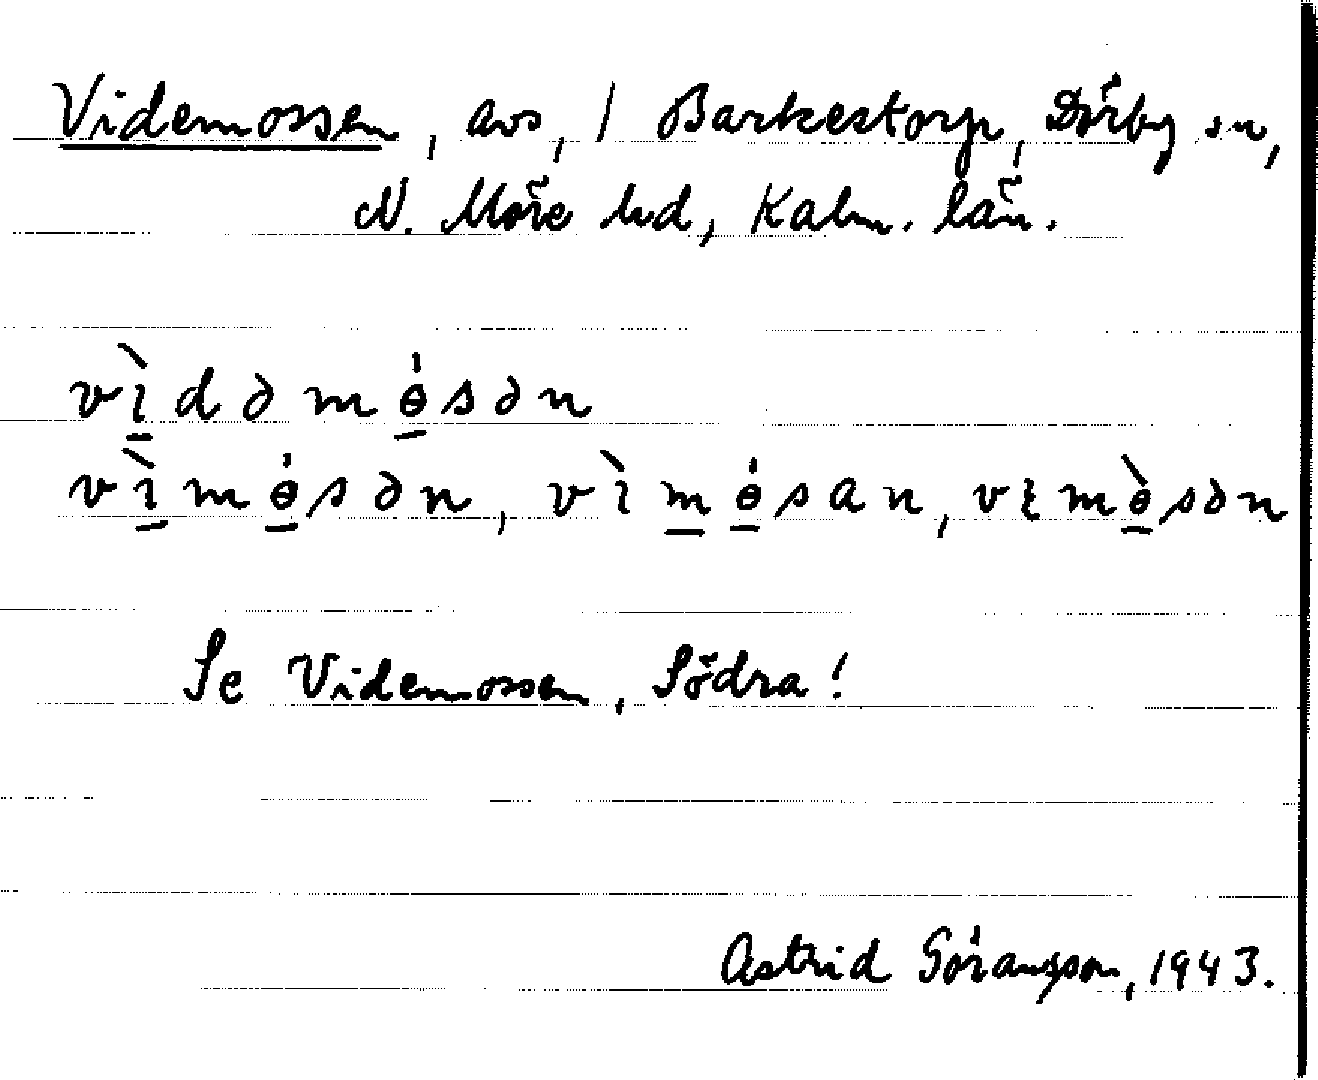 Videmossen, avs, / Barkestorp, Dörby sn,
N. Möre hd, Kalm. län.
vìdəmɵ́sən
vìmɵ́sən, vìmɵ́san, vɩmɵ̀sən
Se Videmossen, Södra!
Astrid Göranzson, 1943.